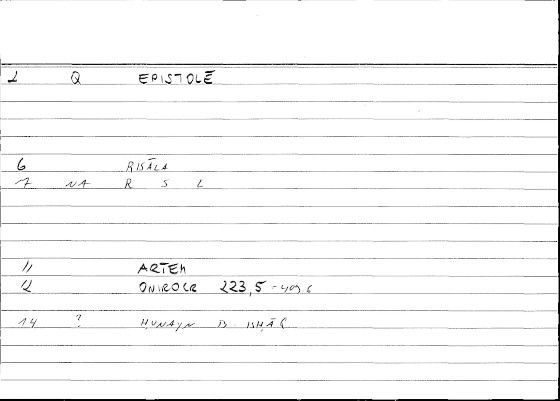 1 Q EPISTOLĒ
6 RISĀLA
7 NA R S L
11 ARTEM
12 ONIROCR 223,5 - 409 6
14 ? HUNAYN B. ISHĀQ